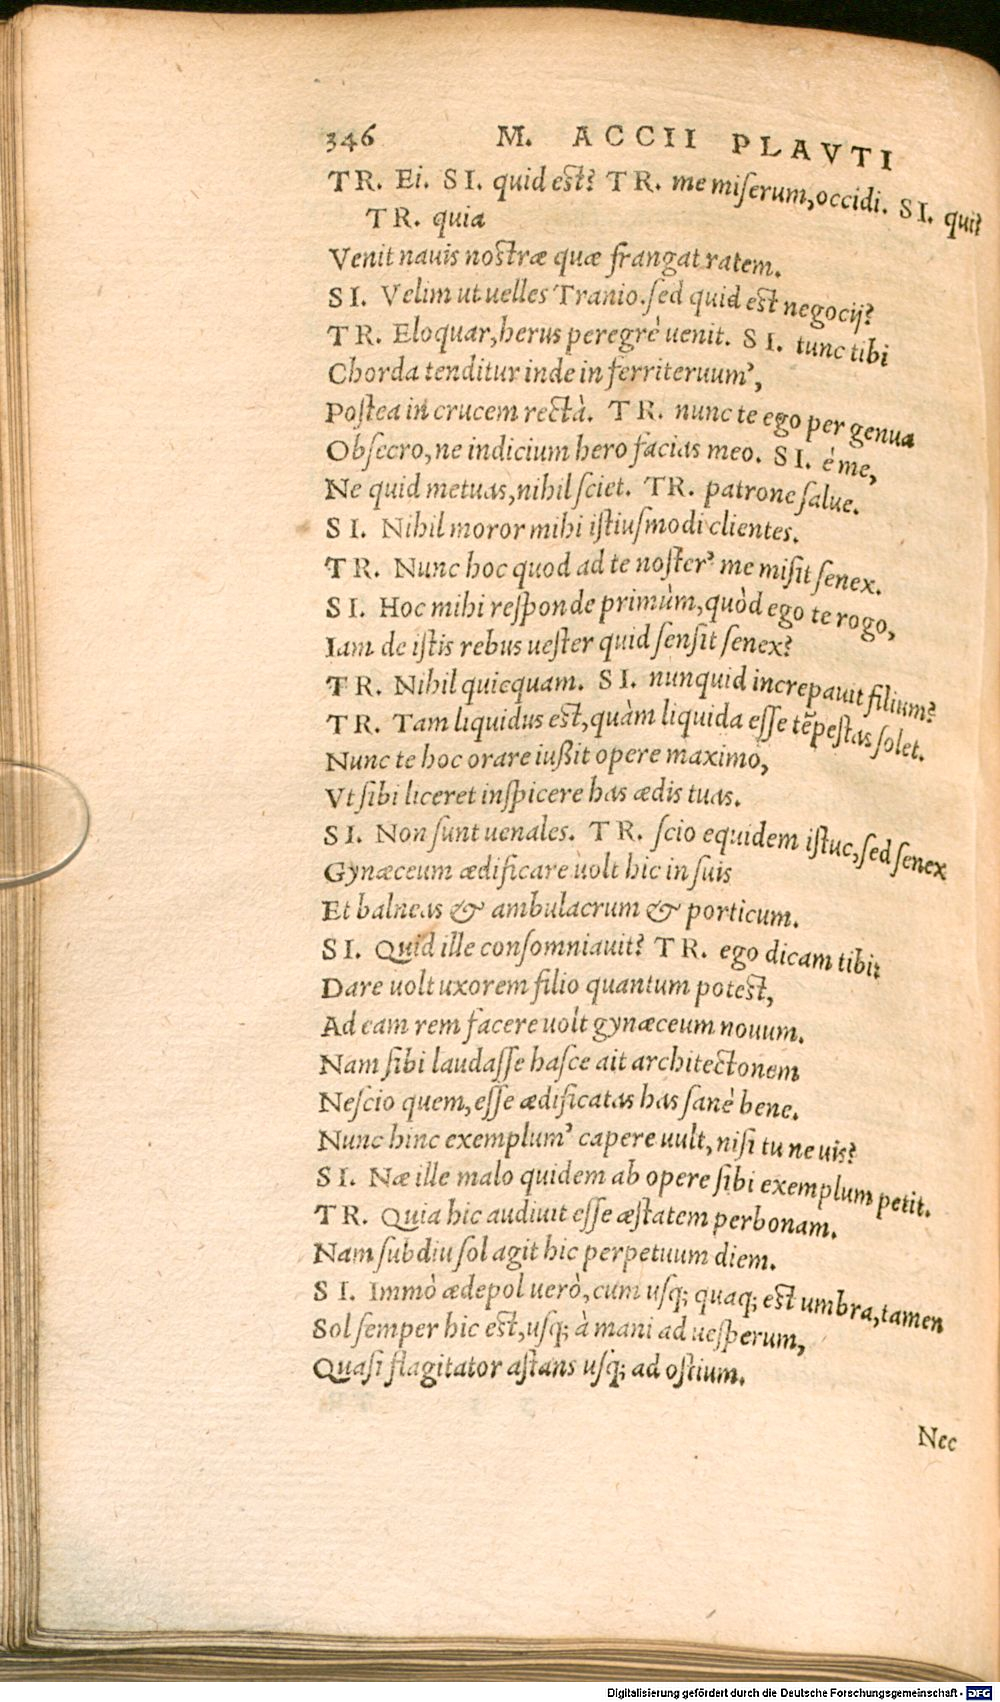 346 M. ACCII PLAVTI
TR. Ei. SI. quid est? TR. me miserum, occidi. SI. qui?
TR. quia
Venit nauis nostræ quæ frangat ratem.
SI. Velim ut uelles Tranio. sed quid est negocij?
TR. Eloquar, herus peregrè uenit. SI. tunc tibi
Chorda tenditur inde in ferriteruum',
Postea in crucem rectà. TR. nunc te ego per genua
Obsecro, ne indicium hero facias meo. SI. è me,
Ne quid metuas, nihil sciet. TR. patrone salue.
SI. Nihil moror mihi istiusmodi clientes.
TR. Nunc hoc quod ad te noster' me misit senex.
SI. Hoc mihi responde primùm, quòd ego te rogo,
Iam de istis rebus uester quid sensit senex?
TR. Nihil quicquam. SI. nunquid increpauit filium?
TR. Tam liquidus est, quàm liquida esse tẽpestas solet.
Nunc te hoc orare iußit opere maximo,
Vt sibi liceret inspicere has ædis tuas.
SI. Non sunt uenales. TR. scio equidem istuc, sed senex
Gynæceum ædificare uolt hic in suis
Et balneas & ambulacrum & porticum.
SI. Quid ille consomniauit? TR. ego dicam tibi:
Dare uolt uxorem filio quantum potest,
Ad eam rem facere uolt gynæceum nouum.
Nam sibi laudasse hasce ait architectonem
Nescio quem, esse ædificatas has sanè bene.
Nunc hinc exemplum' capere uult, nisi tu ne uis?
SI. Næ ille malo quidem ab opere sibi exemplum petit.
TR. Quia hic audiuit esse æstatem perbonam.
Nam sub diu sol agit hic perpetuum diem.
SI. Immò ædepol uerò, cum usq; quaq; est umbra, tamen
Sol semper hic est, usq; à mani ad uesperum,
Quasi flagitator astans usq; ad ostium.
Nec
Digitalisierung gefördert durch die Deutsche Forschungsgemeinschaft - DFG